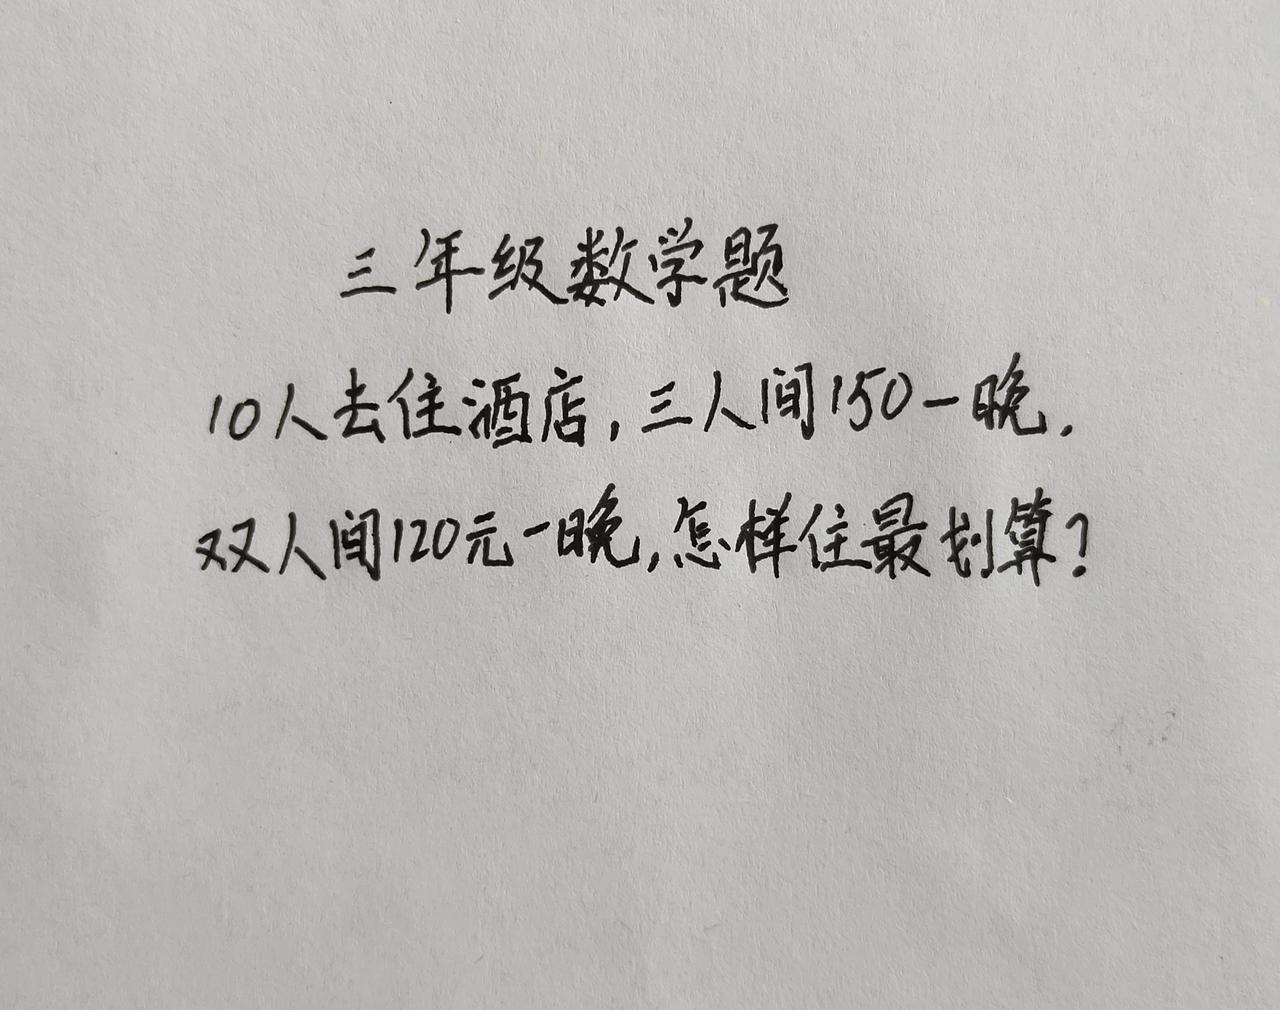 三年级数学题
10人去住酒店,三人间150一晚.
双人间120元一晚,怎样住最划算?